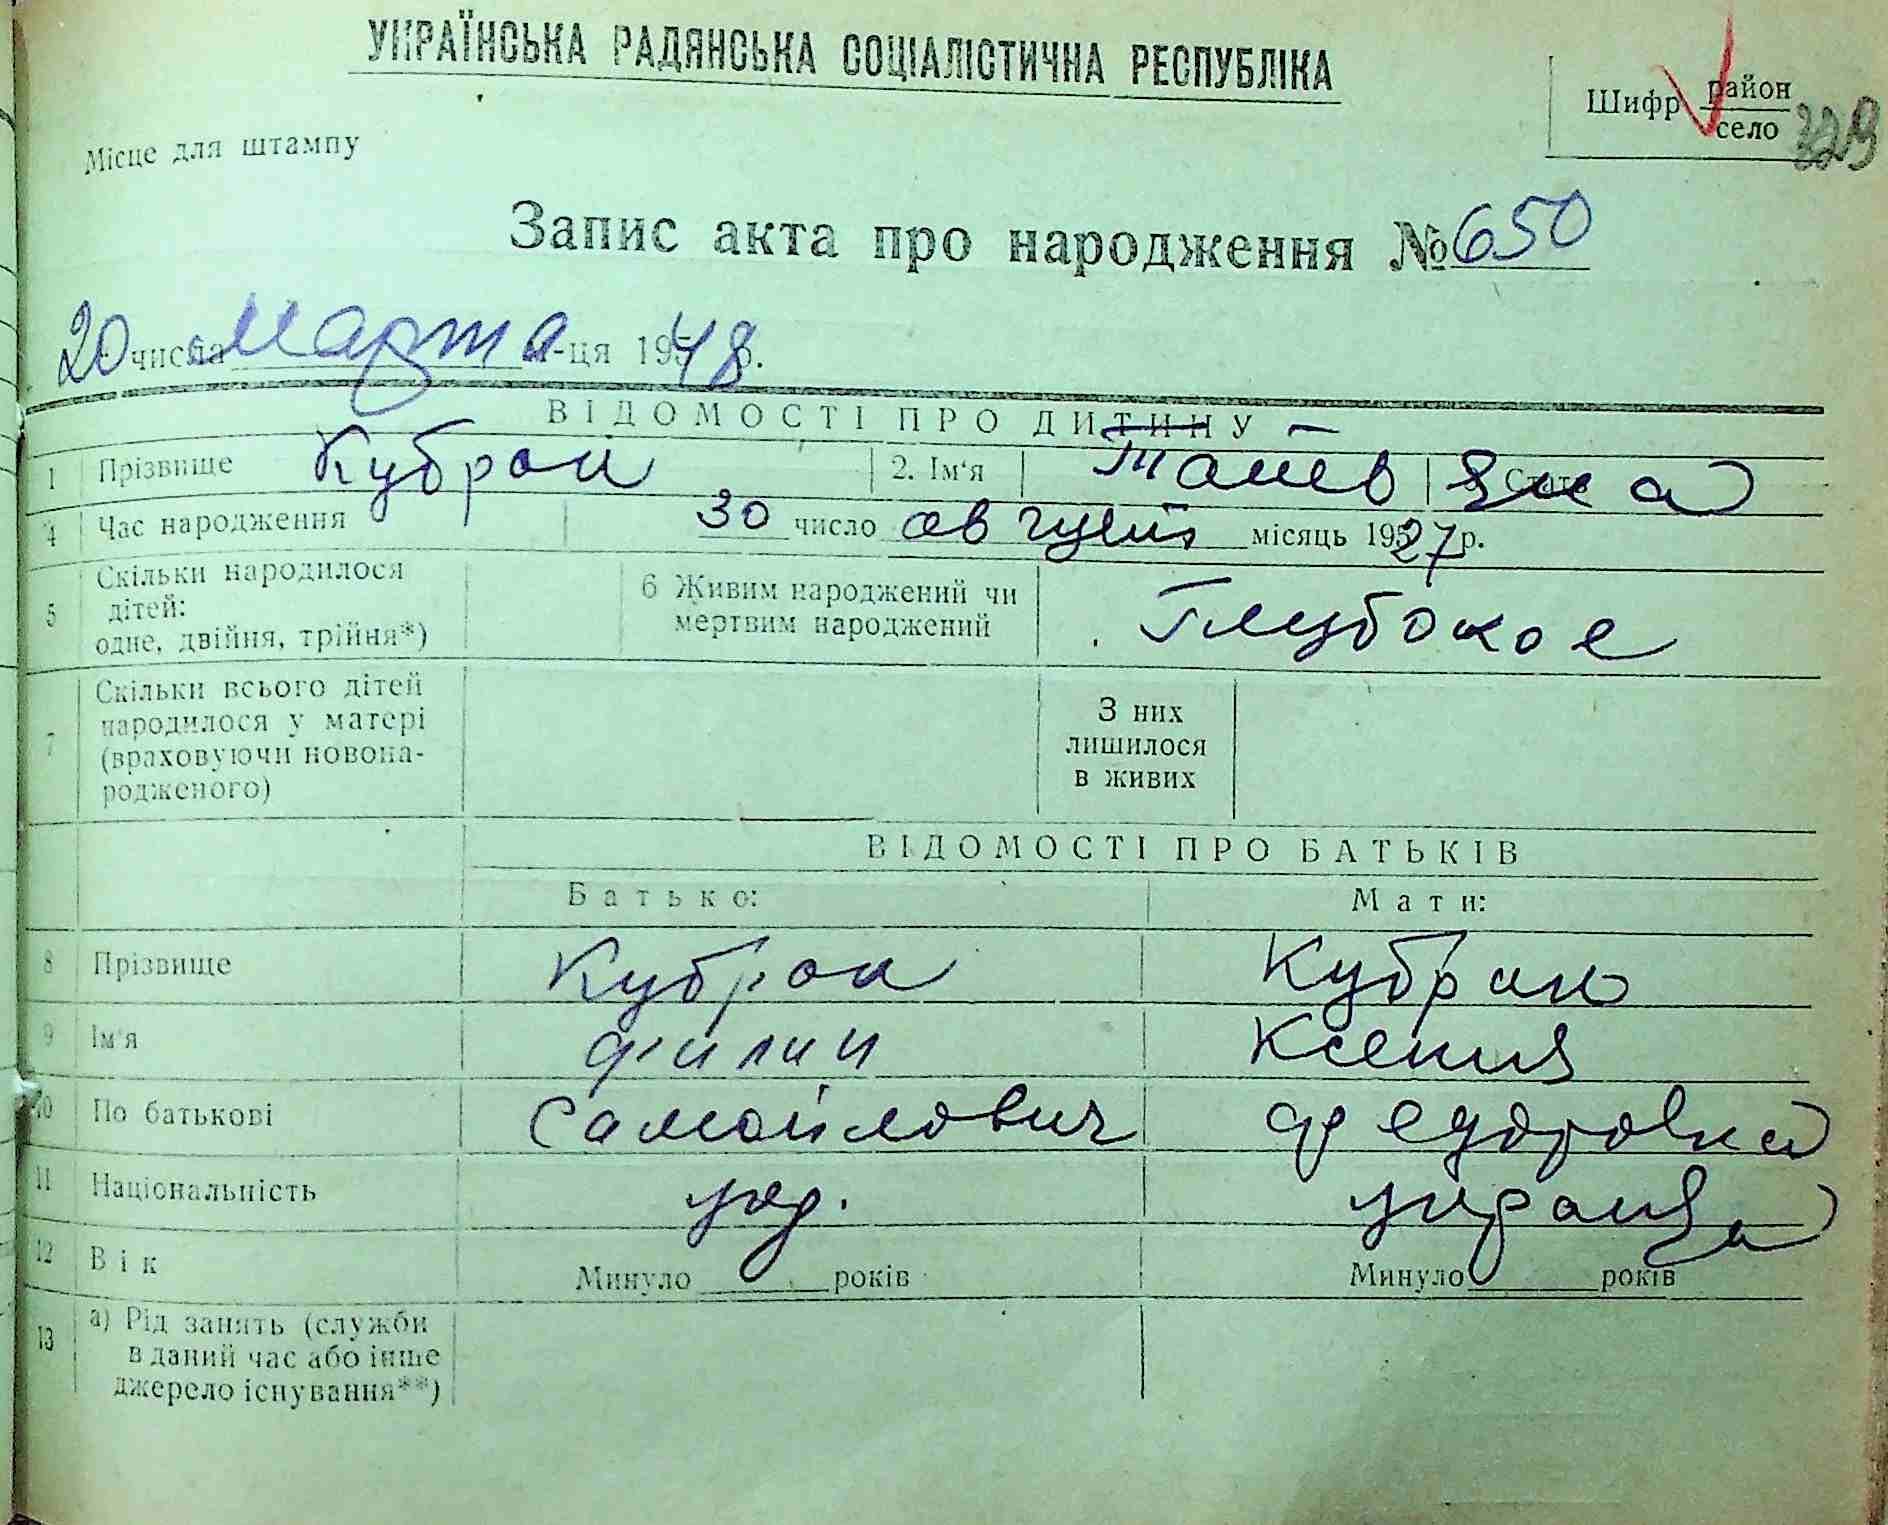 УКРАЇНСЬКА РАДЯНСЬКА СОЦІАЛІСТИЧНА РЕСПУБЛІКА
Шифр район
село 329
Місце для штампу
Запис акта про народження № 650
20 числа Марта м-ця 1948 р.
ВІДОМОСТІ ПРО ДИТИНУ
1 Прізвище Кубрай 2. Ім'я Стать
4 Час народження 30 число август місяць 1927 р.
5 Скільки народилося дітей: одне, двійня, трійня*) 6 Живим народжений чи мертвим народжений Глубокое
7 Скільки всього дітей народилося у матері (враховуючи новонародженого) З них лишилося в живих
ВІДОМОСТІ ПРО БАТЬКІВ
Батько: Мати:
8 Прізвище
9 Ім'я Филип Ксения
10 По батькові Самойлович Федоровна
11 Національність
12 Вік Минуло років Минуло років
13 а) Рід занять (служби в даний час або інше джерело існування**)